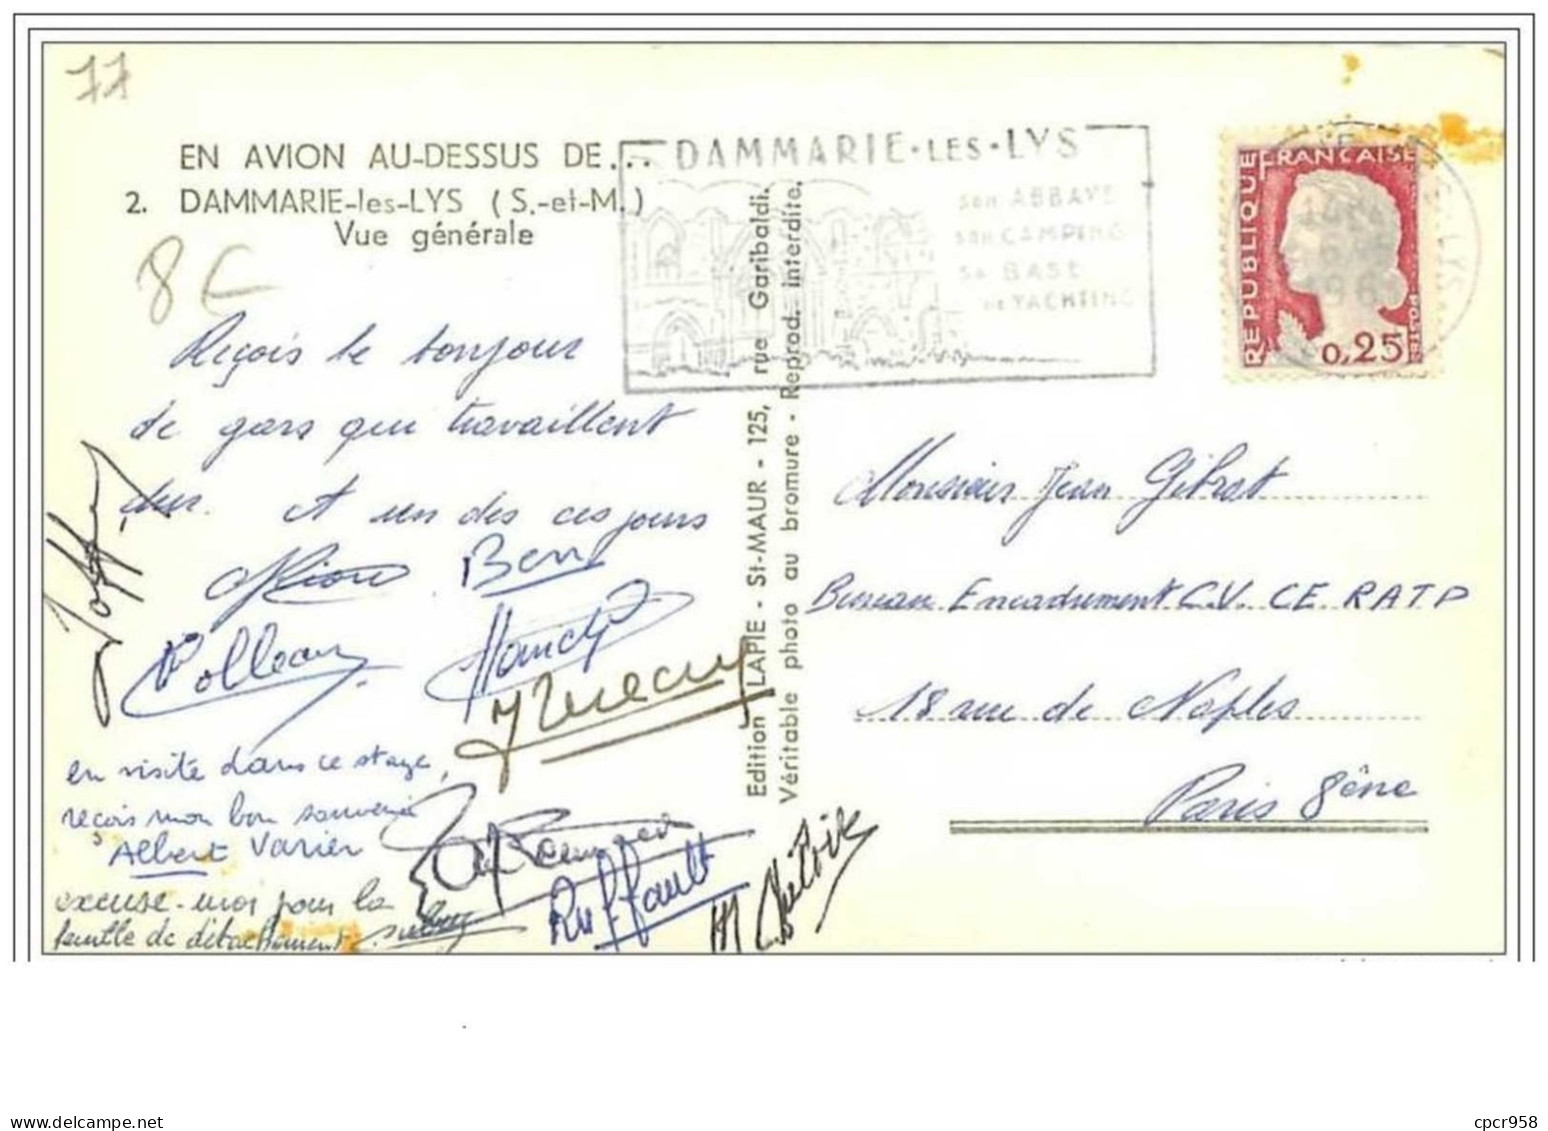 77
EN AVION AU-DESSUS DE...
2. DAMMARIE-les-LYS (S.-et-M.)
Vue générale
8 €
DAMMARIE·LES·LYS
son ABBAYE
son CAMPING
sa BASE
de YACHTING
REPUBLIQUE FRANÇAISE
0,25
Reçois le bonjour
de gars qui travaillent
dur. et un des ces jours
Ben
en visite dans ce stage,
reçois mon bon souvenir
Albert Varier
Ruffault
excuse-moi pour la
feuille de détachement
Edition LAPIE - St-MAUR - 125, rue Garibaldi.
Véritable photo au bromure - Reprod. interdite.
Monsieur Jean Gibrat
Bureau Encadrement C.V. CE. RATP
18 rue de Naples
Paris 8ème
cpcr958